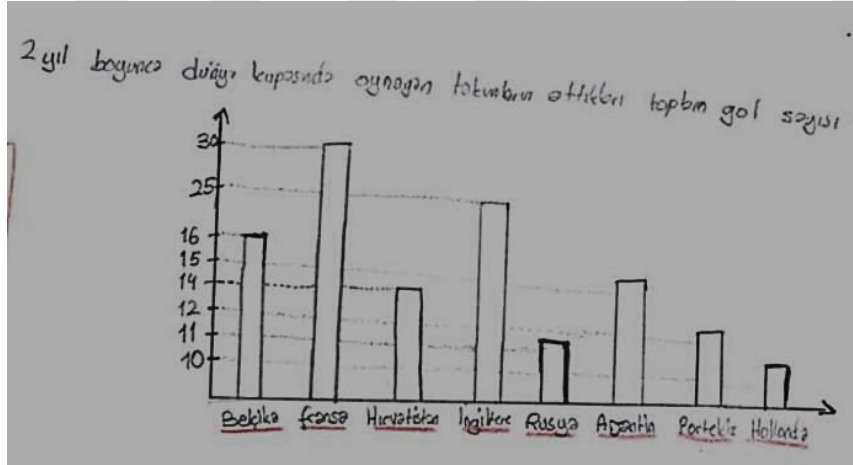 2 yıl boyunca dünya kupasında oynayan takımların attıkları toplam gol sayısı
30
25
16
15
14
12
11
10
Belçika Fransa Hırvatistan İngiltere Rusya Arjantin Portekiz Hollanda